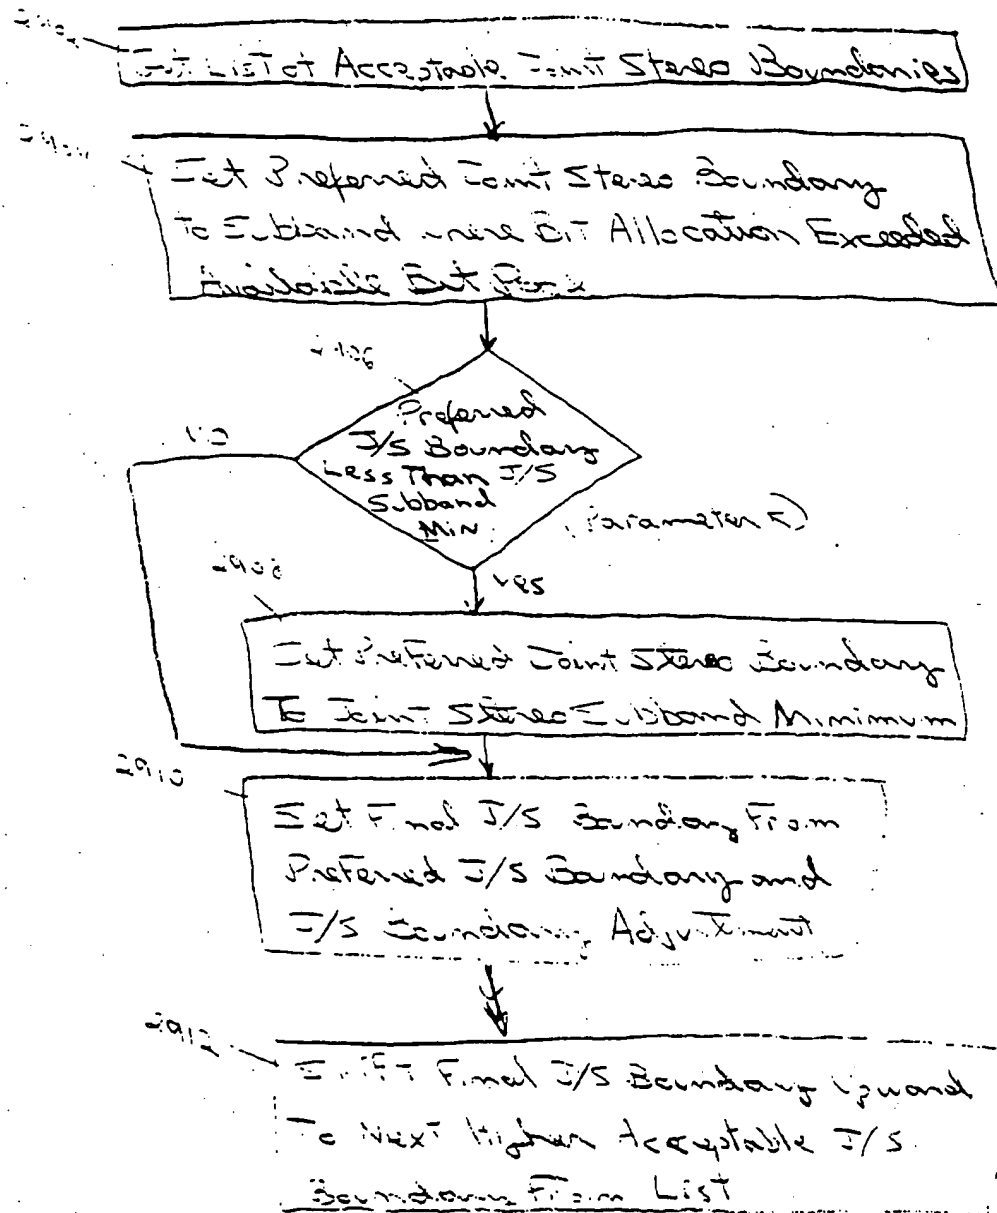 2902
Get List of Acceptable Joint Stereo Boundaries
2904
Set Preferred Joint Stereo Boundary
To Subband where Bit Allocation Exceeded
Available Bit Pool
2906
Preferred
J/S Boundary
Less Than J/S
Subband
Min
NO
(Parameter
2908
Yes
Set Preferred Joint Stereo Boundary
To Joint Stereo Subband Minimum
2910
Set Final J/S Boundary From
Preferred J/S Boundary and
J/S Boundary Adjustment
2912
Shift Final J/S Boundary Upward
To Next Higher Acceptable J/S
Boundary From List